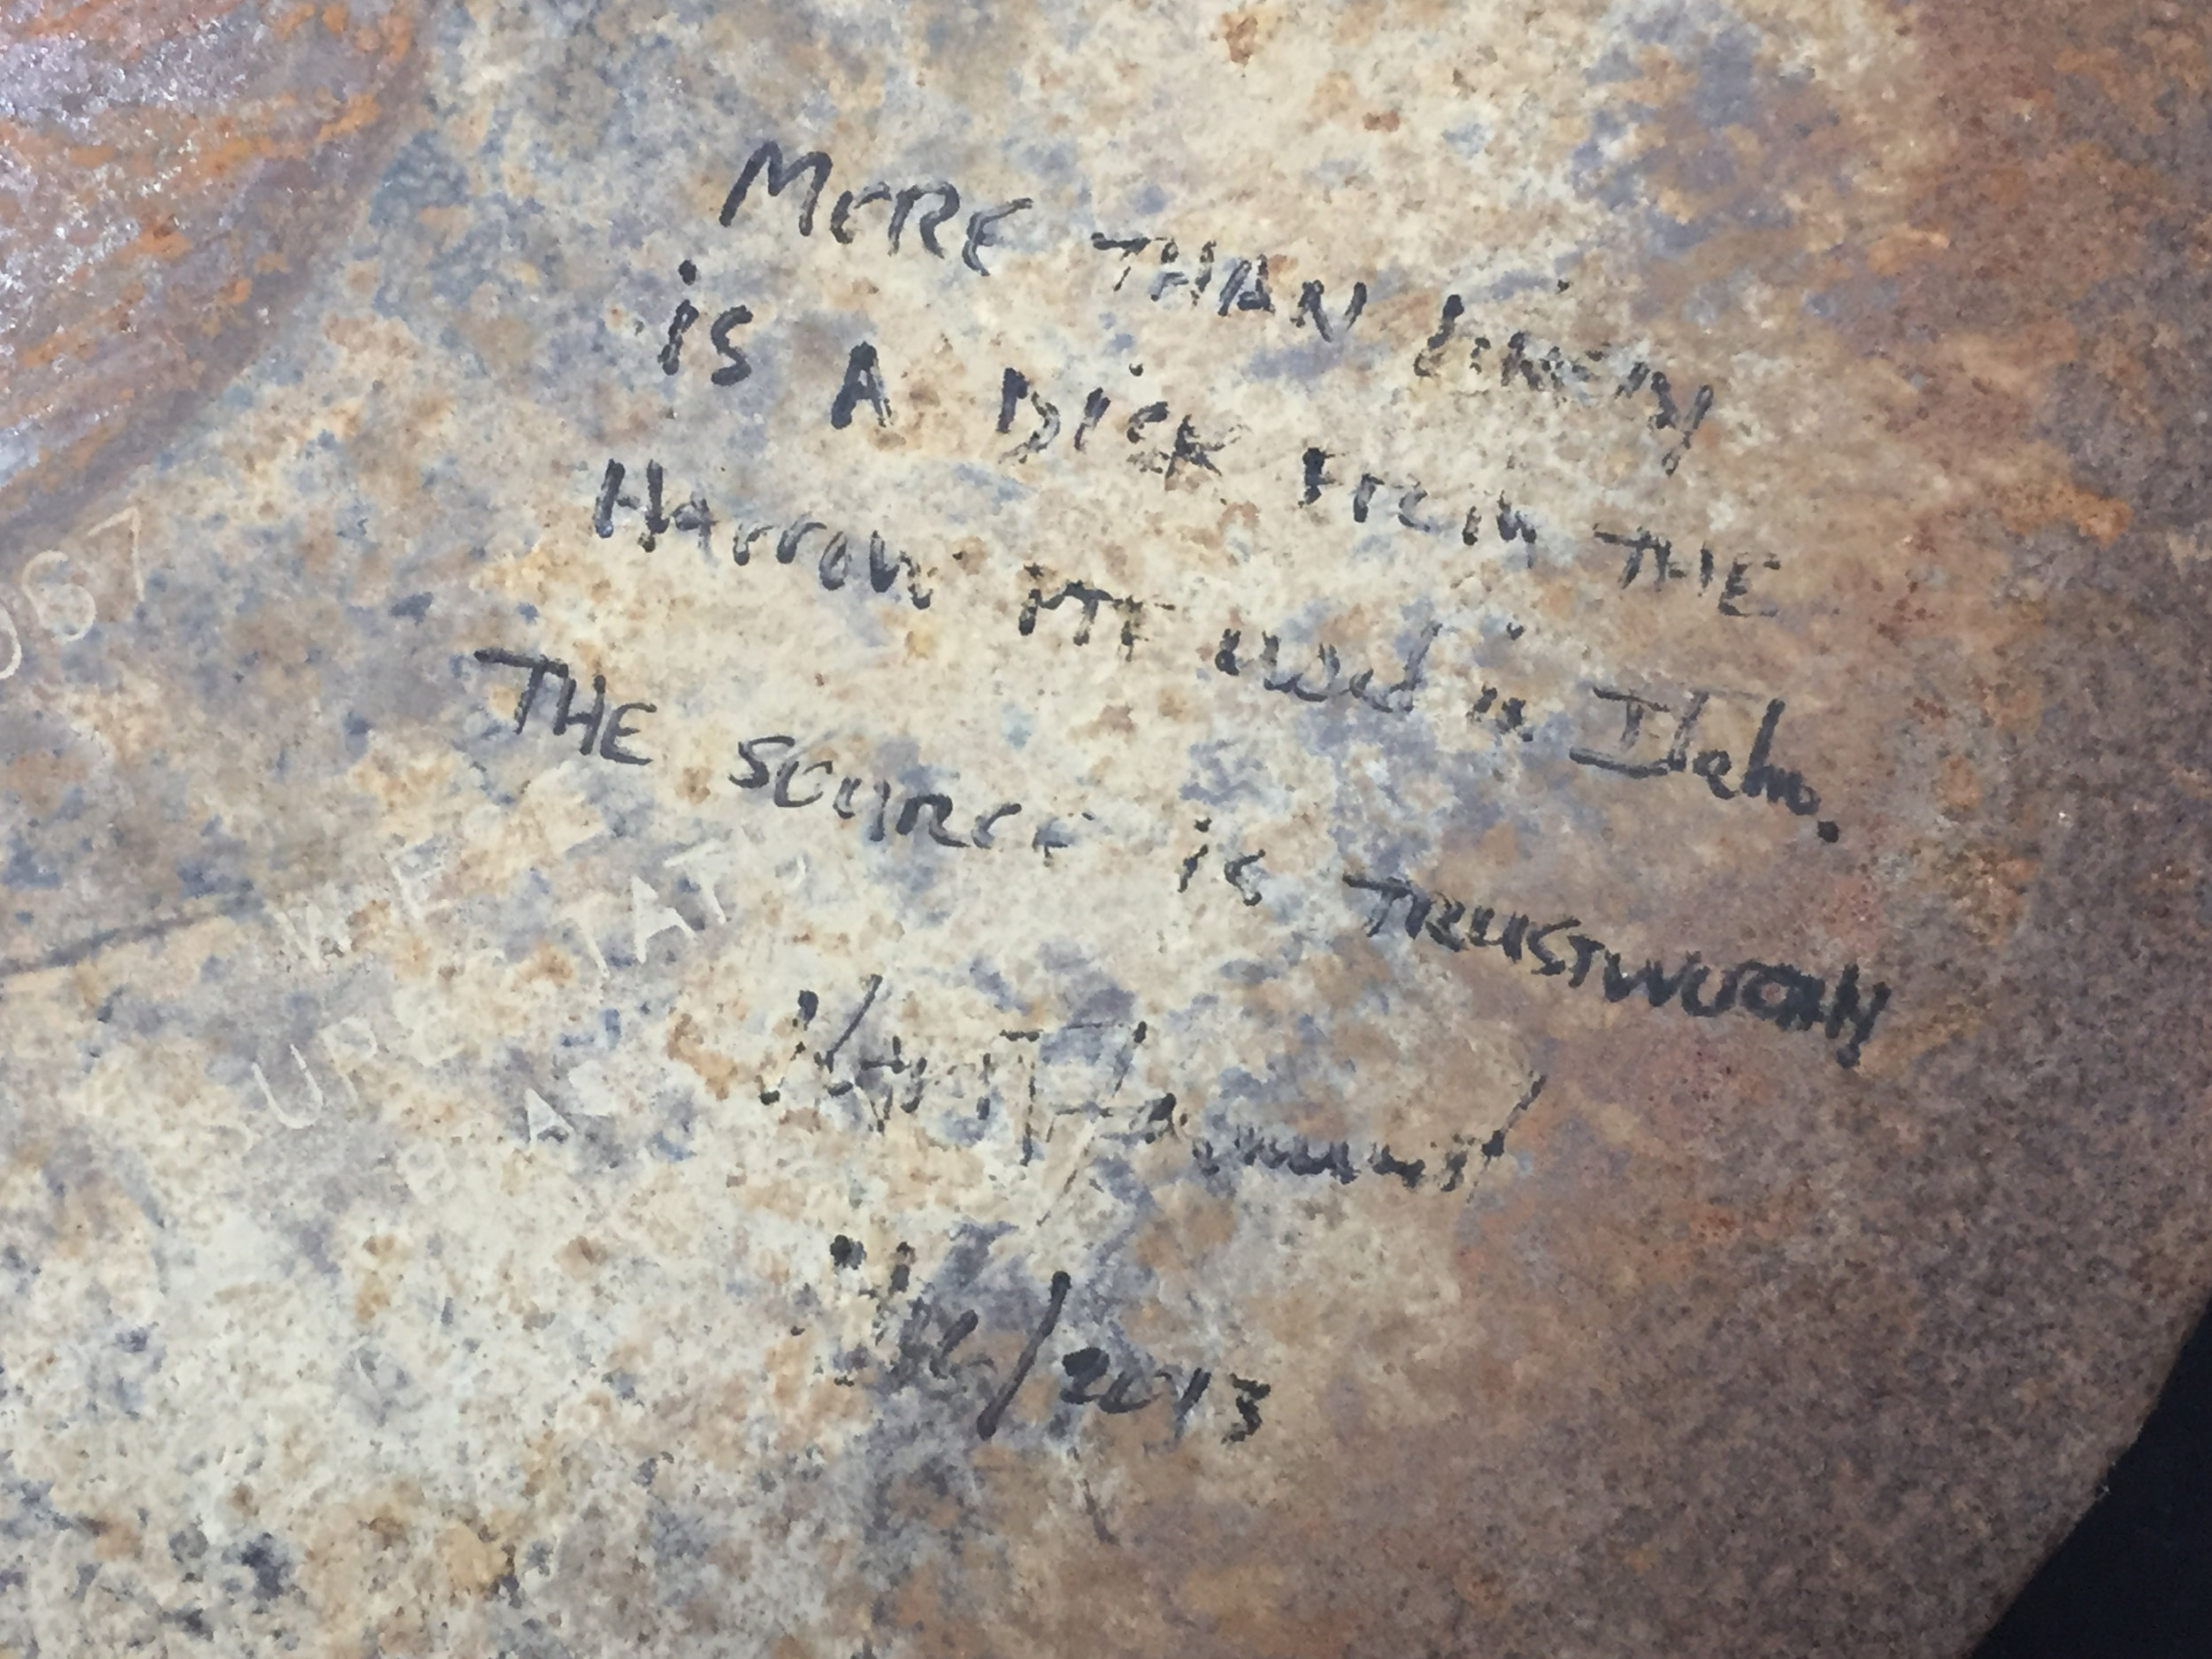 MORE THAN Likely
is A DISK From THE
Harrow MTF used in Idaho.
THE SOURCE is TRUSTWORTHY
/2013
067